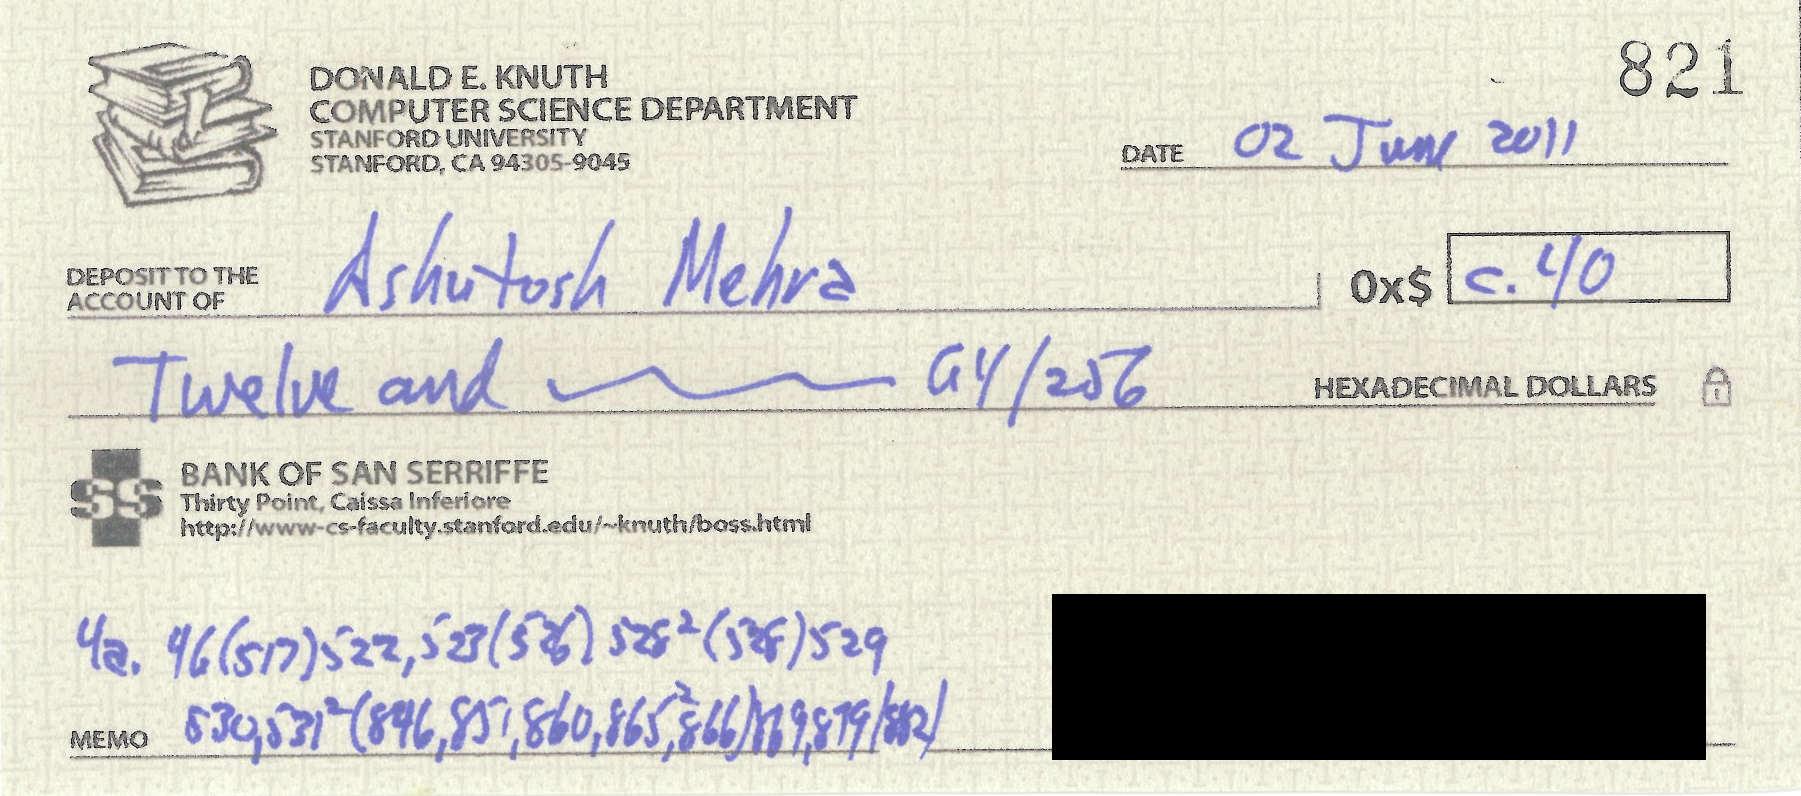 821
DONALD E. KNUTH
COMPUTER SCIENCE DEPARTMENT
STANFORD UNIVERSITY
STANFORD, CA 94305-9045
DATE 02 June 2011
DEPOSIT TO THE
ACCOUNT OF Ashutosh Mehra 0x$ c.40
Twelve and 64/256 HEXADECIMAL DOLLARS
SS BANK OF SAN SERRIFFE
Thirty Point, Caissa Inferiore
http://www-cs-faculty.stanford.edu/~knuth/boss.html
4a. 46(517)522,523(526)528²(528)529
MEMO 530,531²(846,851,860,865²,866)869,879(882)